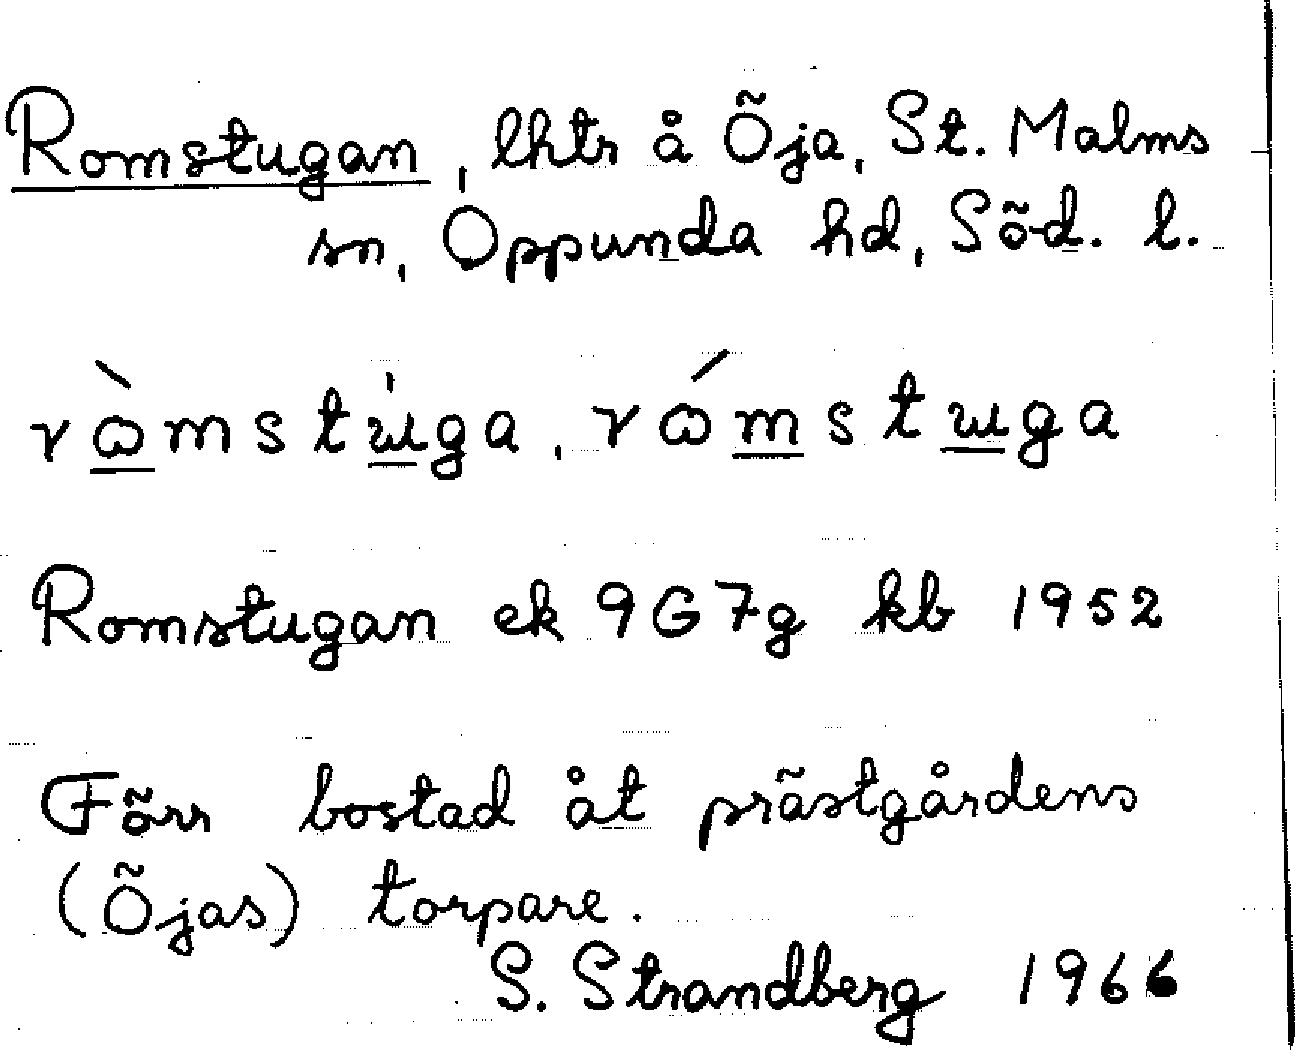 Romstugan, lhtr å Öja, St. Malms
sn, Oppunda hd, Söd. l.
ròmstu̍ga, rómstuga
Romstugan ek 9G7g kb 1952
Förr bostad åt prästgårdens
(Öjas) torpare.
S. Strandberg 1966